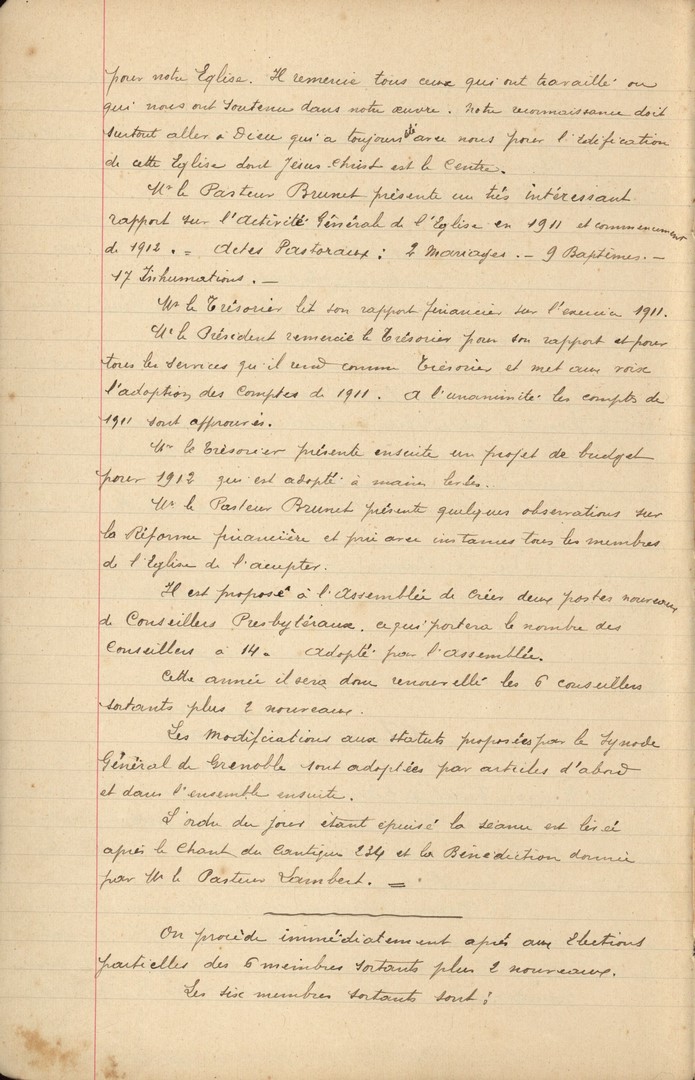 pour notre Eglise. Il remercie tous ceux qui ont travaillé ou
qui nous ont soutenu dans notre œuvre. Notre reconnaissance doit
surtout aller à Dieu qui a toujours été avec nous pour l'édification
de cette Eglise dont Jésus-Christ est le Centre.
Mr le Pasteur Brunet présente un très intéressant
rapport sur l'activité Générale de l'Eglise en 1911 et commencement
de 1912. = Actes Pastoraux : 2 Mariages. - 9 Baptêmes. -
17 Inhumations. -
Mr le Trésorier lit son rapport financier sur l'exercice 1911.
Mr le Président remercie le Trésorier pour son rapport et pour
tous les services qu'il rend comme Trésorier et met aux voix
l'adoption des Comptes de 1911. A l'unanimité les comptes de
1911 sont approuvés.
Mr le Trésorier présente ensuite un projet de budget
pour 1912 qui est adopté à mains levées.
Mr le Pasteur Brunet présente quelques observations sur
la Réforme financière et prie avec instances tous les membres
de l'Eglise de l'accepter.
Il est proposé à l'Assemblée de créer deux postes nouveaux
de Conseillers Presbytéraux, ce qui portera le nombre des
Conseillers à 14. Adopté par l'Assemblée.
Cette année il sera donc renouvellé les 6 conseillers
sortants plus 2 nouveaux.
Les modifications aux statuts proposées par le Synode
Général de Grenoble sont adoptées par articles d'abord
et dans l'ensemble ensuite.
L'ordre du jour étant épuisé la séance est levée
après le Chant du Cantique 234 et la Bénédiction donnée
par Mr le Pasteur Lambert. =
On procède immédiatement après aux Elections
partielles des 6 membres sortants plus 2 nouveaux.
Les six membres sortants sont :